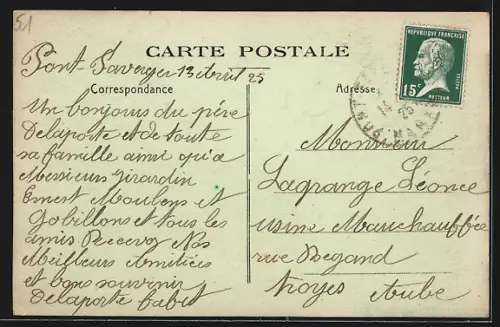 51
CARTE POSTALE
Pont-Faverger 13 Avril 25
Correspondance
Adresse
REPUBLIQUE FRANÇAISE
15c
PASTEUR
POSTES
Un bonjour du père
Delaporte et de toute
sa famille ainsi qu'a
Messieurs Girardin
Ernest Moulens et
Gobillons et tous les
amis Recevez Nos
Meilleurs Amitiées
et bons souvenir
Delaporte
Monsieur
Lagrange Léonce
usine Mauchauffée
rue Begand
Troyes Aube
PONT
MARNE
14
25